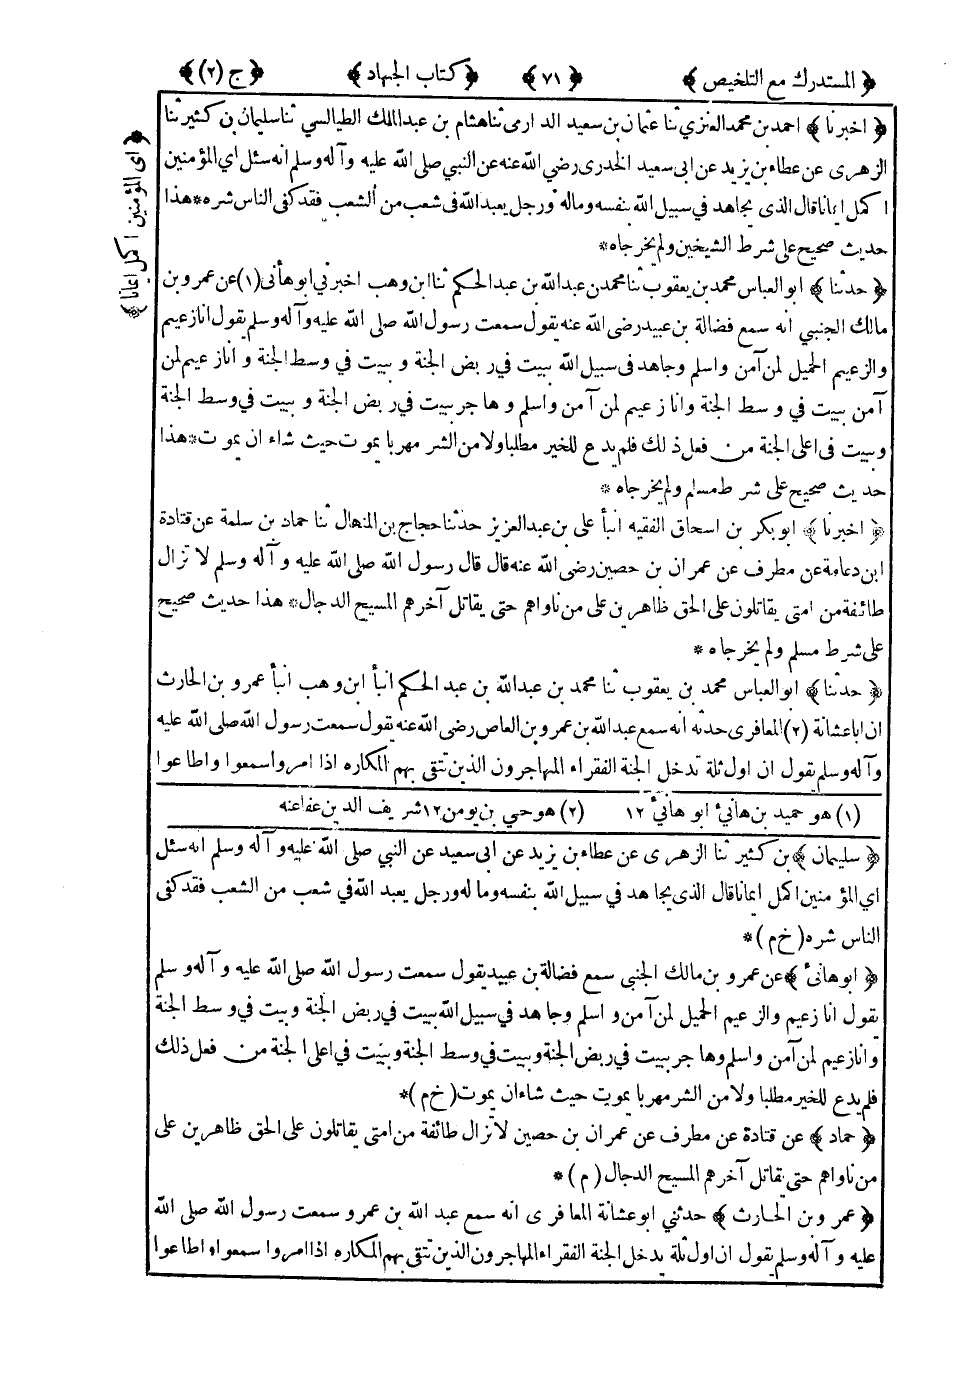 ﴿ المستدرك مع التلخيص ﴾ ﴿ ٧١ ﴾ ﴿ كتاب الجهاد ﴾ ﴿ ج (٢) ﴾
﴿ اى المؤمنين اكمل ايمانا ﴾
﴿ اخبرنا ﴾ احمد بن محمد العنزي ثنا عثمان بن سعيد الدارمى ثنا هشام بن عبد الملك الطيالسي ثنا سليمان بن كثير ثنا
الزهرى عن عطاء بن يزيد عن ابى سعيد الخدرى رضي الله عنه عن النبي صلى الله عليه وآله وسلم انه سئل اي المؤمنين
اكمل ايمانا قال الذى يجاهد في سبيل الله بنفسه وماله ورجل يعبد الله فى شعب من الشعب فقد كفى الناس شره * هذا
حديث صحيح على شرط الشيخين ولم يخرجاه *
﴿ حدثنا ﴾ ابو العباس محمد بن يعقوب ثنا محمد بن عبد الله بن عبد الحكم ثنا ابن وهب اخبرني ابو هأنى (١) عن عمرو بن
مالك الجنبي انه سمع فضالة بن عبيد رضى الله عنه يقول سمعت رسول الله صلى الله عليه وآله وسلم يقول انا زعيم
والزعيم الحميل لمن آمن واسلم وجاهد فى سبيل الله ببيت في ربض الجنة و ببيت في وسط الجنة و انا زعيم لمن
آمن ببيت في وسط الجنة وانا زعيم لمن آمن واسلم وهاجر ببيت في ربض الجنة و ببيت في وسط الجنة
وببيت فى اعلى الجنة من فعل ذلك فلم يدع للخير مطلبا ولا من الشر مهربا يموت حيث شاء ان يموت * هذا
حديث صحيح على شرط مسلم ولم يخرجاه *
﴿ اخبرنا ﴾ ابو بكر بن اسحاق الفقيه انبأ على بن عبد العزيز حدثنا حجاج بن المنهال ثنا حماد بن سلمة عن قتادة
ابن دعامة عن مطرف عن عمران بن حصين رضى الله عنه قال قال رسول الله صلى الله عليه وآله وسلم لا تزال
طائفة من امتى يقاتلون على الحق ظاهرين على من ناواهم حتى يقاتل آخرهم المسيح الدجال * هذا حديث صحيح
على شرط مسلم ولم يخرجاه *
﴿ حدثنا ﴾ ابو العباس محمد بن يعقوب ثنا محمد بن عبد الله بن عبد الحكم انبأ ابن وهب انبأ عمرو بن الحارث
ان ابا عشانة (٢) المعافرى حدثه انه سمع عبد الله بن عمرو بن العاص رضى الله عنه يقول سمعت رسول الله صلى الله عليه
وآله وسلم يقول ان اول ثلة تدخل الجنة الفقراء المهاجرون الذين تتقى بهم المكاره اذا امروا سمعوا واطاعوا
(١) هو حميد بن هانئ ابو هانئ ١٢ (٢) هو حي بن يومن ١٢ شريف الدين عفا عنه
﴿ سليمان ﴾ بن كثير ثنا الزهرى عن عطاء بن يزيد عن ابى سعيد عن النبي صلى الله عليه وآله وسلم انه سئل
اي المؤمنين اكمل ايمانا قال الذى يجاهد في سبيل الله بنفسه وماله ورجل يعبد الله في شعب من الشعب فقد كفى
الناس شره (خ م) *
﴿ ابو هانئ ﴾ عن عمرو بن مالك الجنبى سمع فضالة بن عبيد يقول سمعت رسول الله صلى الله عليه وآله وسلم
يقول انا زعيم والزعيم الحميل لمن آمن واسلم وجاهد في سبيل الله ببيت في ربض الجنة وبيت في وسط الجنة
وانا زعيم لمن آمن واسلم وهاجر ببيت في ربض الجنة وببيت في وسط الجنة وببيت في اعلى الجنة من فعل ذلك
فلم يدع للخير مطلبا ولا من الشر مهربا يموت حيث شاء ان يموت (خ م) *
﴿ حماد ﴾ عن قتادة عن مطرف عن عمران بن حصين لا تزال طائفة من امتى يقاتلون على الحق ظاهرين على
من ناواهم حتى يقاتل آخرهم المسيح الدجال (م) *
﴿ عمرو بن الحارث ﴾ حدثني ابو عشانة المعافرى انه سمع عبد الله بن عمرو سمعت رسول الله صلى الله
عليه وآله وسلم يقول ان اول ثلة يدخل الجنة الفقراء المهاجرون الذين تتقى بهم المكاره اذا امروا سمعوا واطاعوا